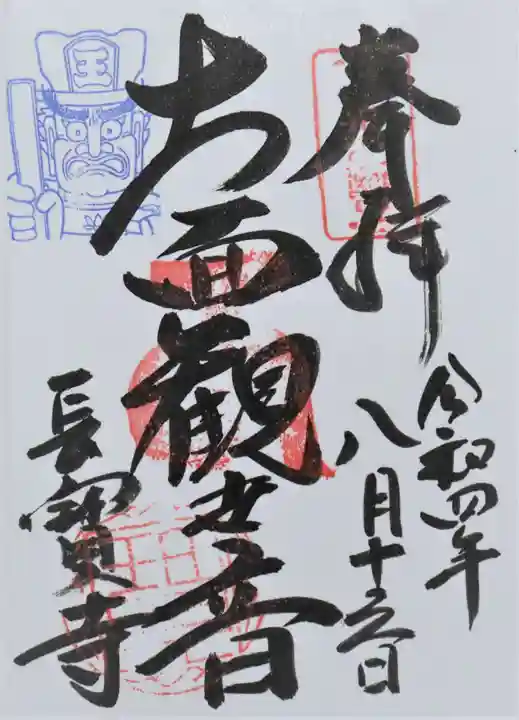 奉拝
令和四年
八月十五日
十一面観世音
長寶寺
王